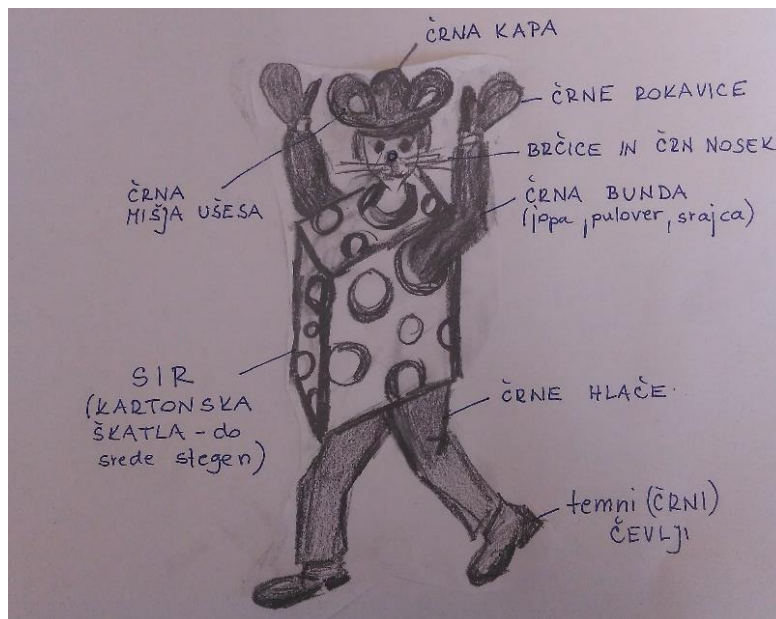 ČRNA KAPA
ČRNE ROKAVICE
BRČICE IN ČRN NOSEK
ČRNA
MIŠJA UŠESA
ČRNA BUNDA
(jopa, pulover, srajca)
SIR
(KARTONSKA
ŠKATLA - do
srede stegen)
ČRNE HLAČE
temni (ČRNI)
ČEVLJI